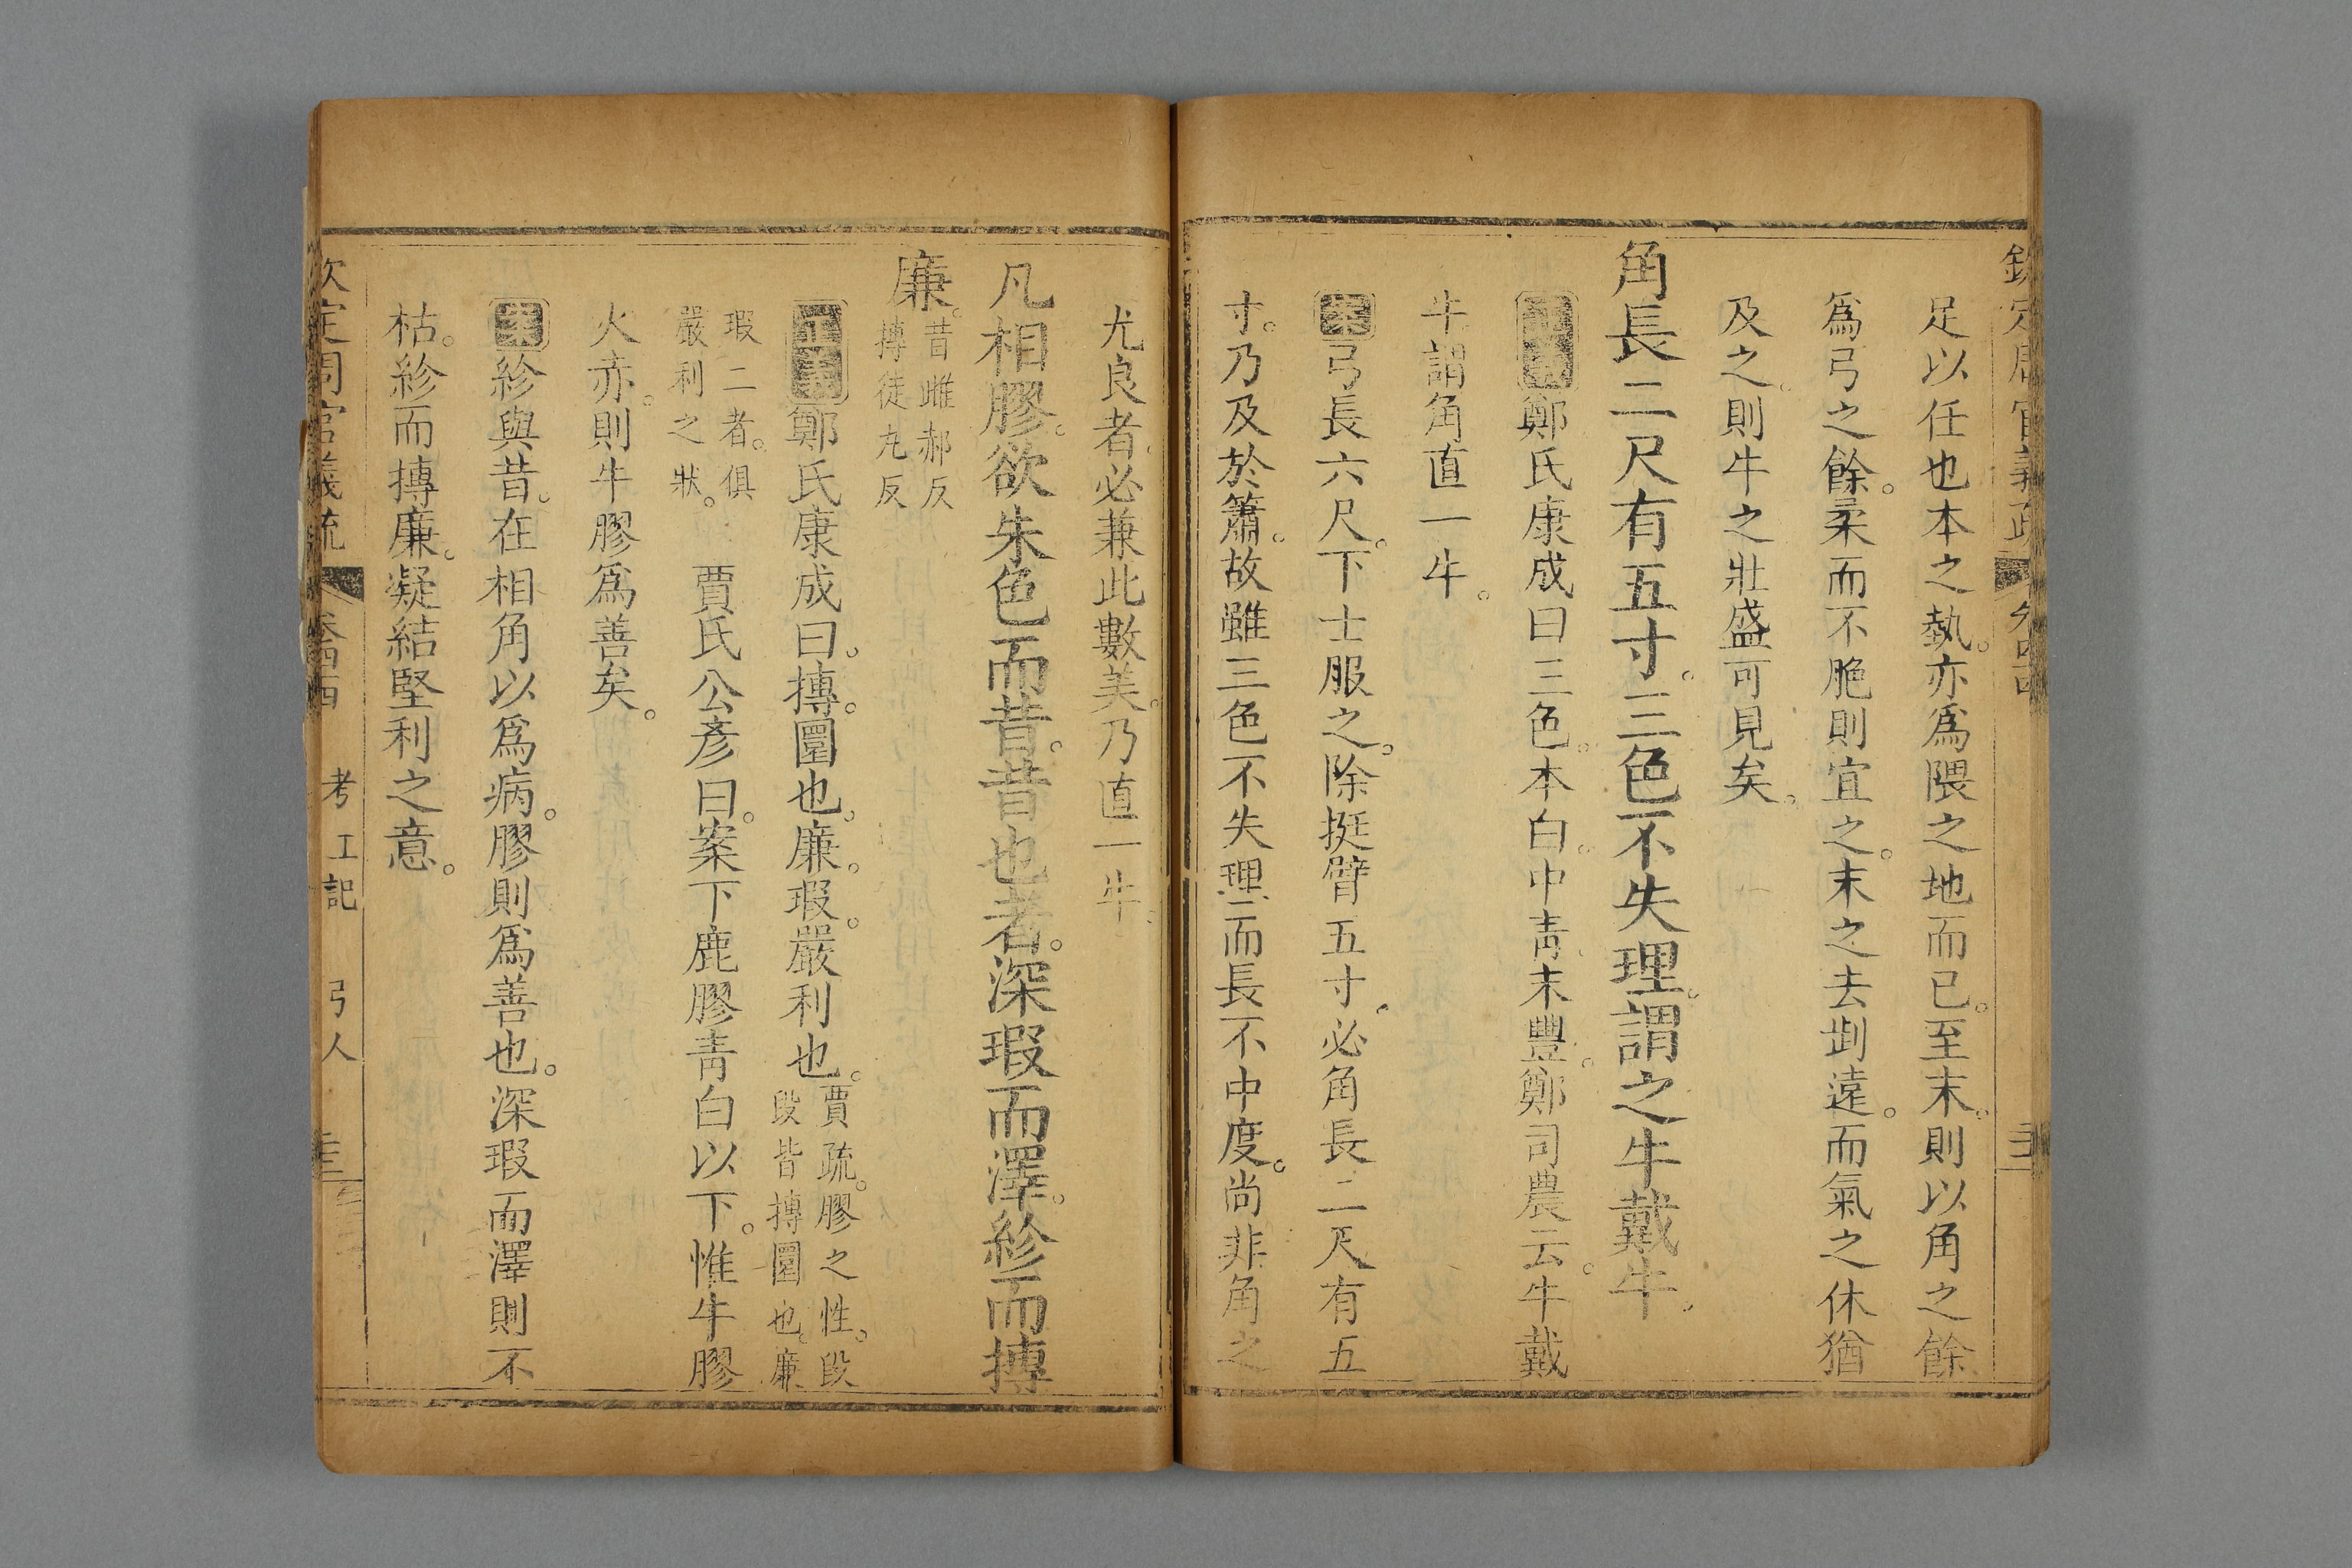 足以任也本之埶亦爲隈之地而已至末則以角之餘
爲弓之餘柔而不脃則宜之末之去㓾遠而氣之休猶
及之則牛之壯盛可見矣
角長二尺有五寸三色不失理謂之牛戴牛
鄭氏康成曰三色本白中靑末豐鄭司農云牛戴
牛謂角直一牛
案弓長六尺下士服之除挺臂五寸必角長二尺有五
寸乃及於簫故雖三色不失理而長不中度尚非角之
尤良者必兼此數美乃直一牛
凡相膠欲朱色而昔昔也者深瑕而澤紾而摶
廉昔雌郝反
摶徒丸反
正義鄭氏康成曰摶圜也廉瑕嚴利也賈疏膠之性段
段皆摶圜也廉
瑕二者俱
嚴利之狀
賈氏公彥曰案下鹿膠靑白以下惟牛膠
火赤則牛膠爲善矣
案紾與昔在相角以爲病膠則爲善也深瑕而澤則不
枯紾而摶廉凝結堅利之意
考工記 弓人